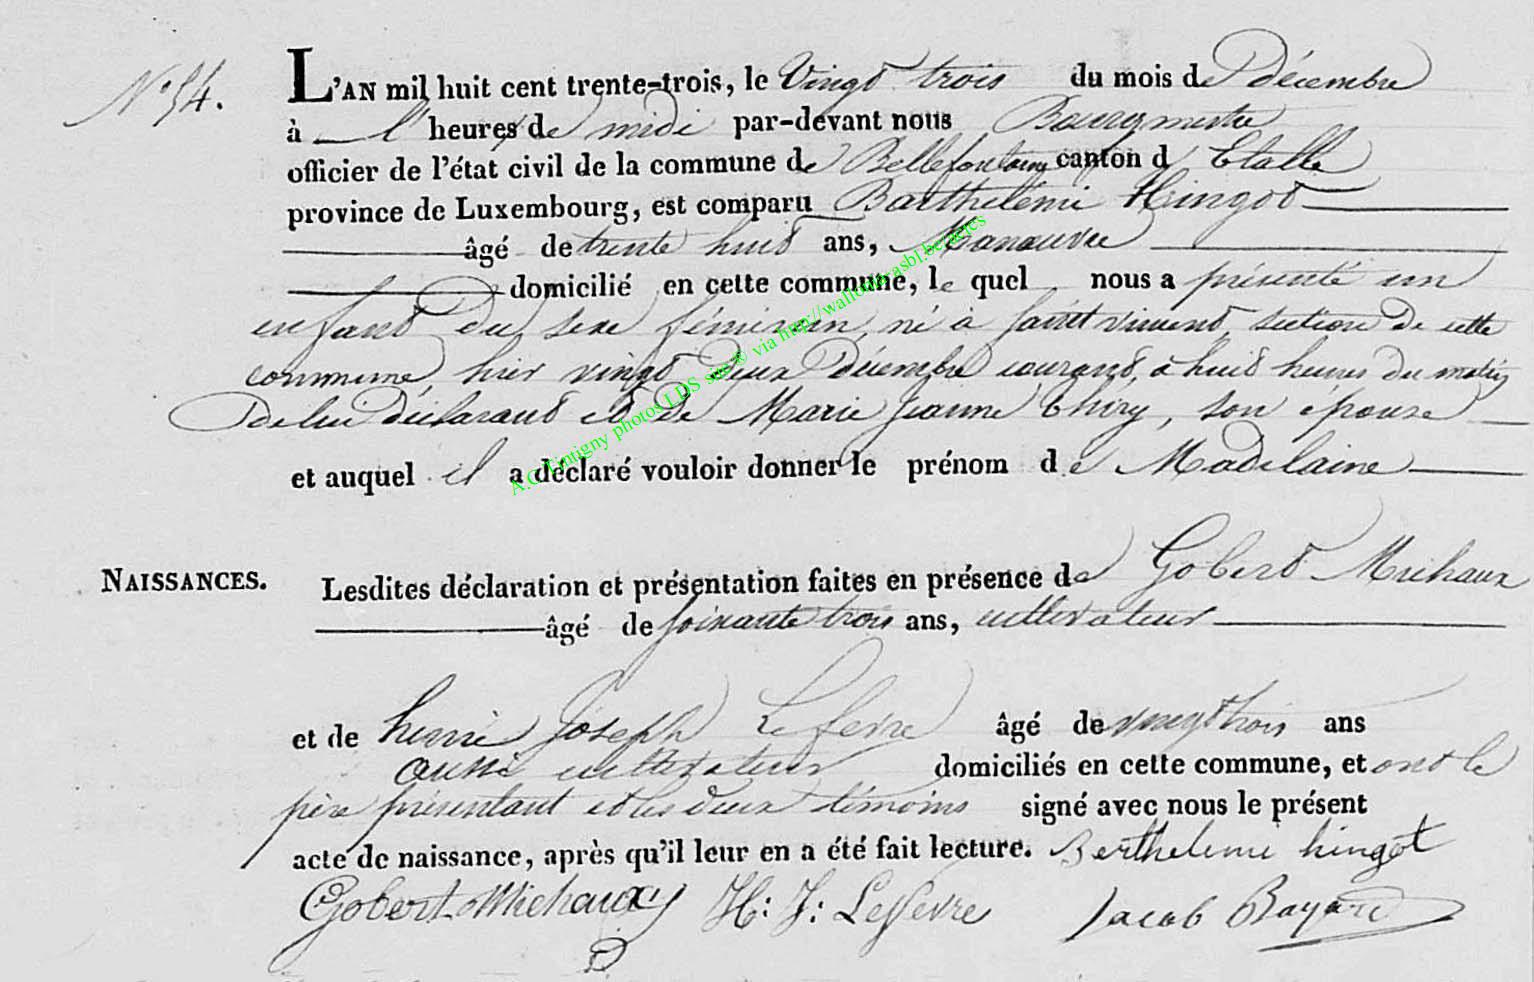 N° 54.
L'AN mil huit cent trente-trois, le Vingt trois du mois de Décembre
à l' heure de midi par-devant nous Bourgmestre
officier de l'état civil de la commune de Bellefontaine canton d'Etalle
province de Luxembourg, est comparu Barthelémi Hingot
âgé de trente huit ans, Manœuvre
domicilié en cette commune, le quel nous a présenté un
enfant du sexe féminin, né à Saint vincent, section de cette
commune, hier vingt deux Décembre courant à huit heures du matin
de lui déclarant et de Marie Jeanne Thiry, son épouse
et auquel il a déclaré vouloir donner le prénom de Madelaine
NAISSANCES.
Lesdites déclaration et présentation faites en présence de Gobert Michaux
âgé de soixante trois ans, cultivateur
et de henri Joseph Lefevre âgé de vingt trois ans
aussi cultivateur domiciliés en cette commune, et ont le
père présentant et les deux témoins signé avec nous le présent
acte de naissance, après qu'il leur en a été fait lecture. Berthelemi hingot
Gobert Michaux H: J: Lefevre Jacob Bayard
A.G. Tintigny photos LDS site © via http://wallonia.asbl.be/actes